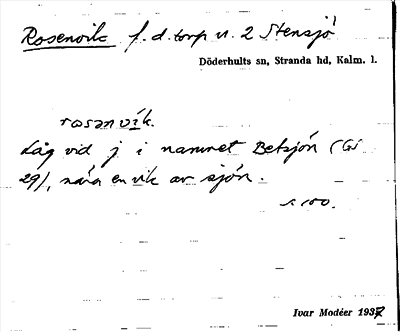 Rosenvik f.d. torp u. 2 Stensjö
Döderhults sn, Stranda hd, Kalm. l.
rosənvík.
Låg vid j i namnet Betsjön (Gs
29), nära en vik av sjön.
s. 100.
Ivar Modéer 1937